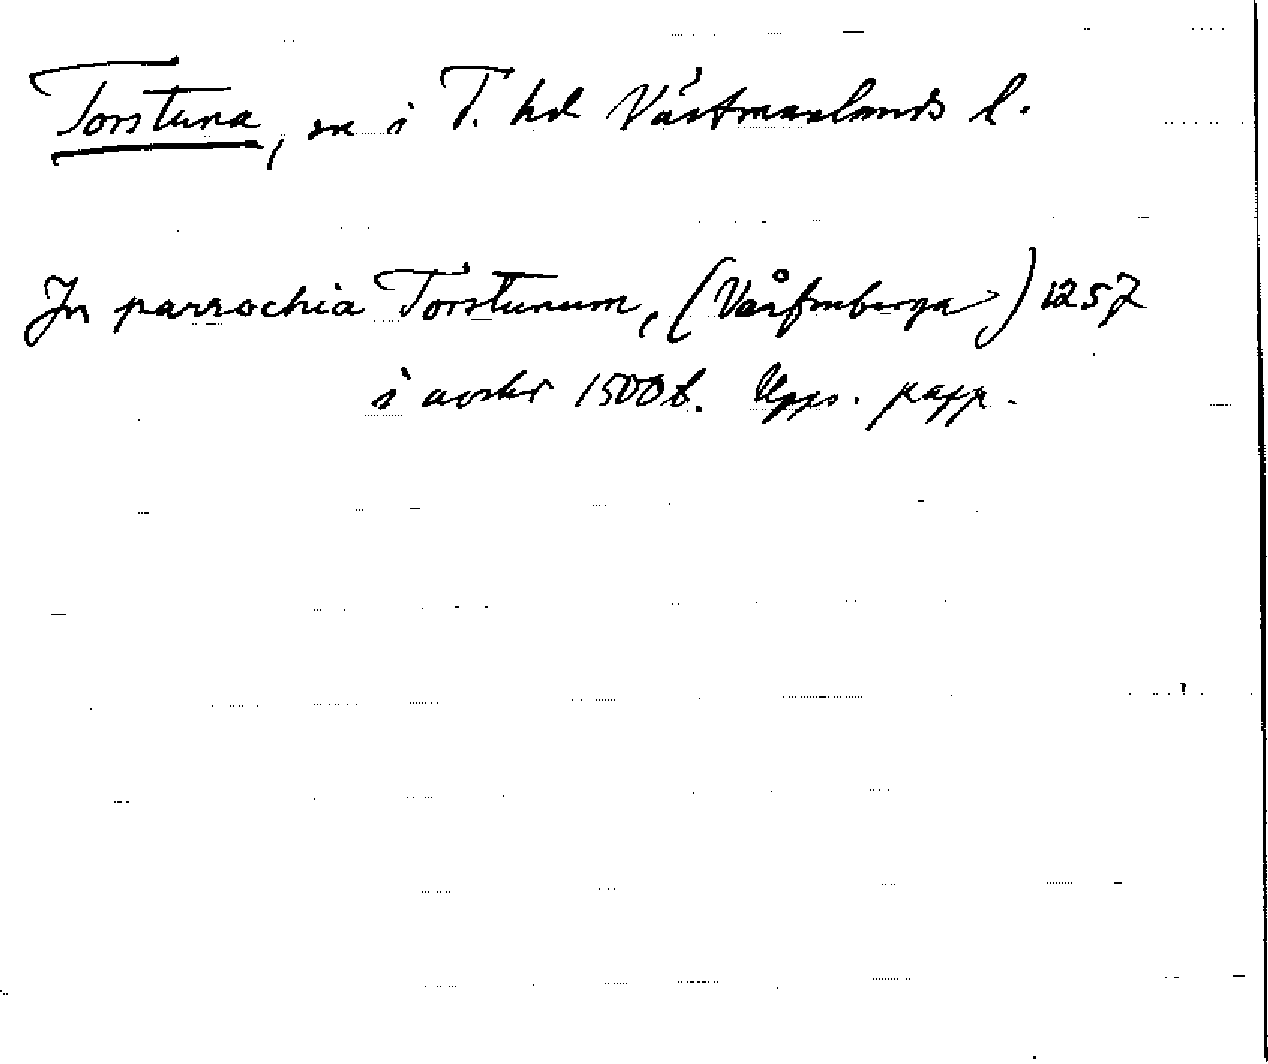 Torstuna, sn i T. hd Västmanlands l.
In parrochia Torstunum, (Vårfruberga) 1257
i avskr 1500 t. Upps. papp.